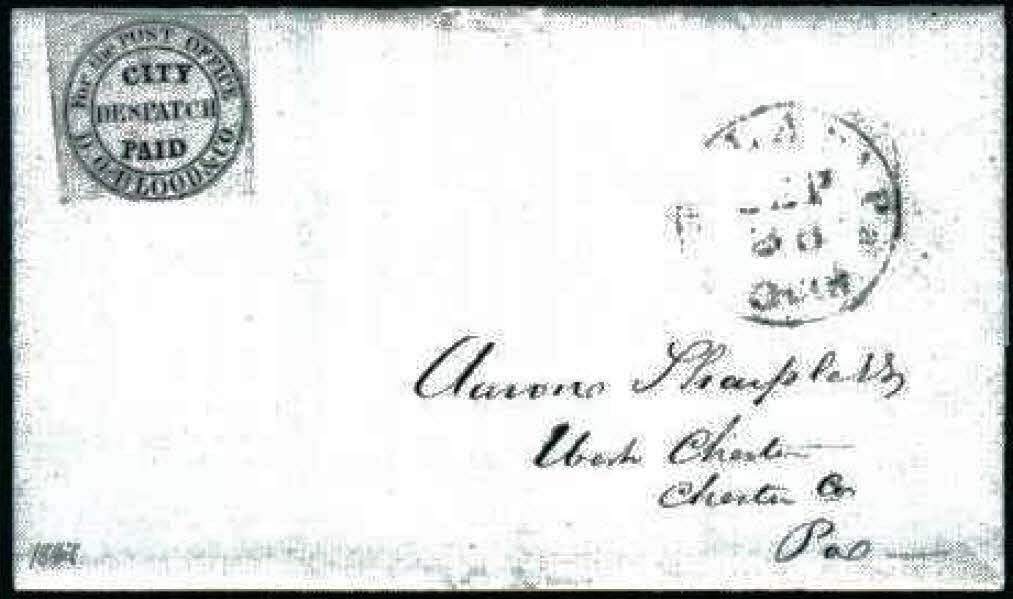 for the POST OFFICE
CITY
DESPATCH
PAID
D.O. BLOOD & CO
Aaron Sharpless
West Chester
Chester Co
Pa